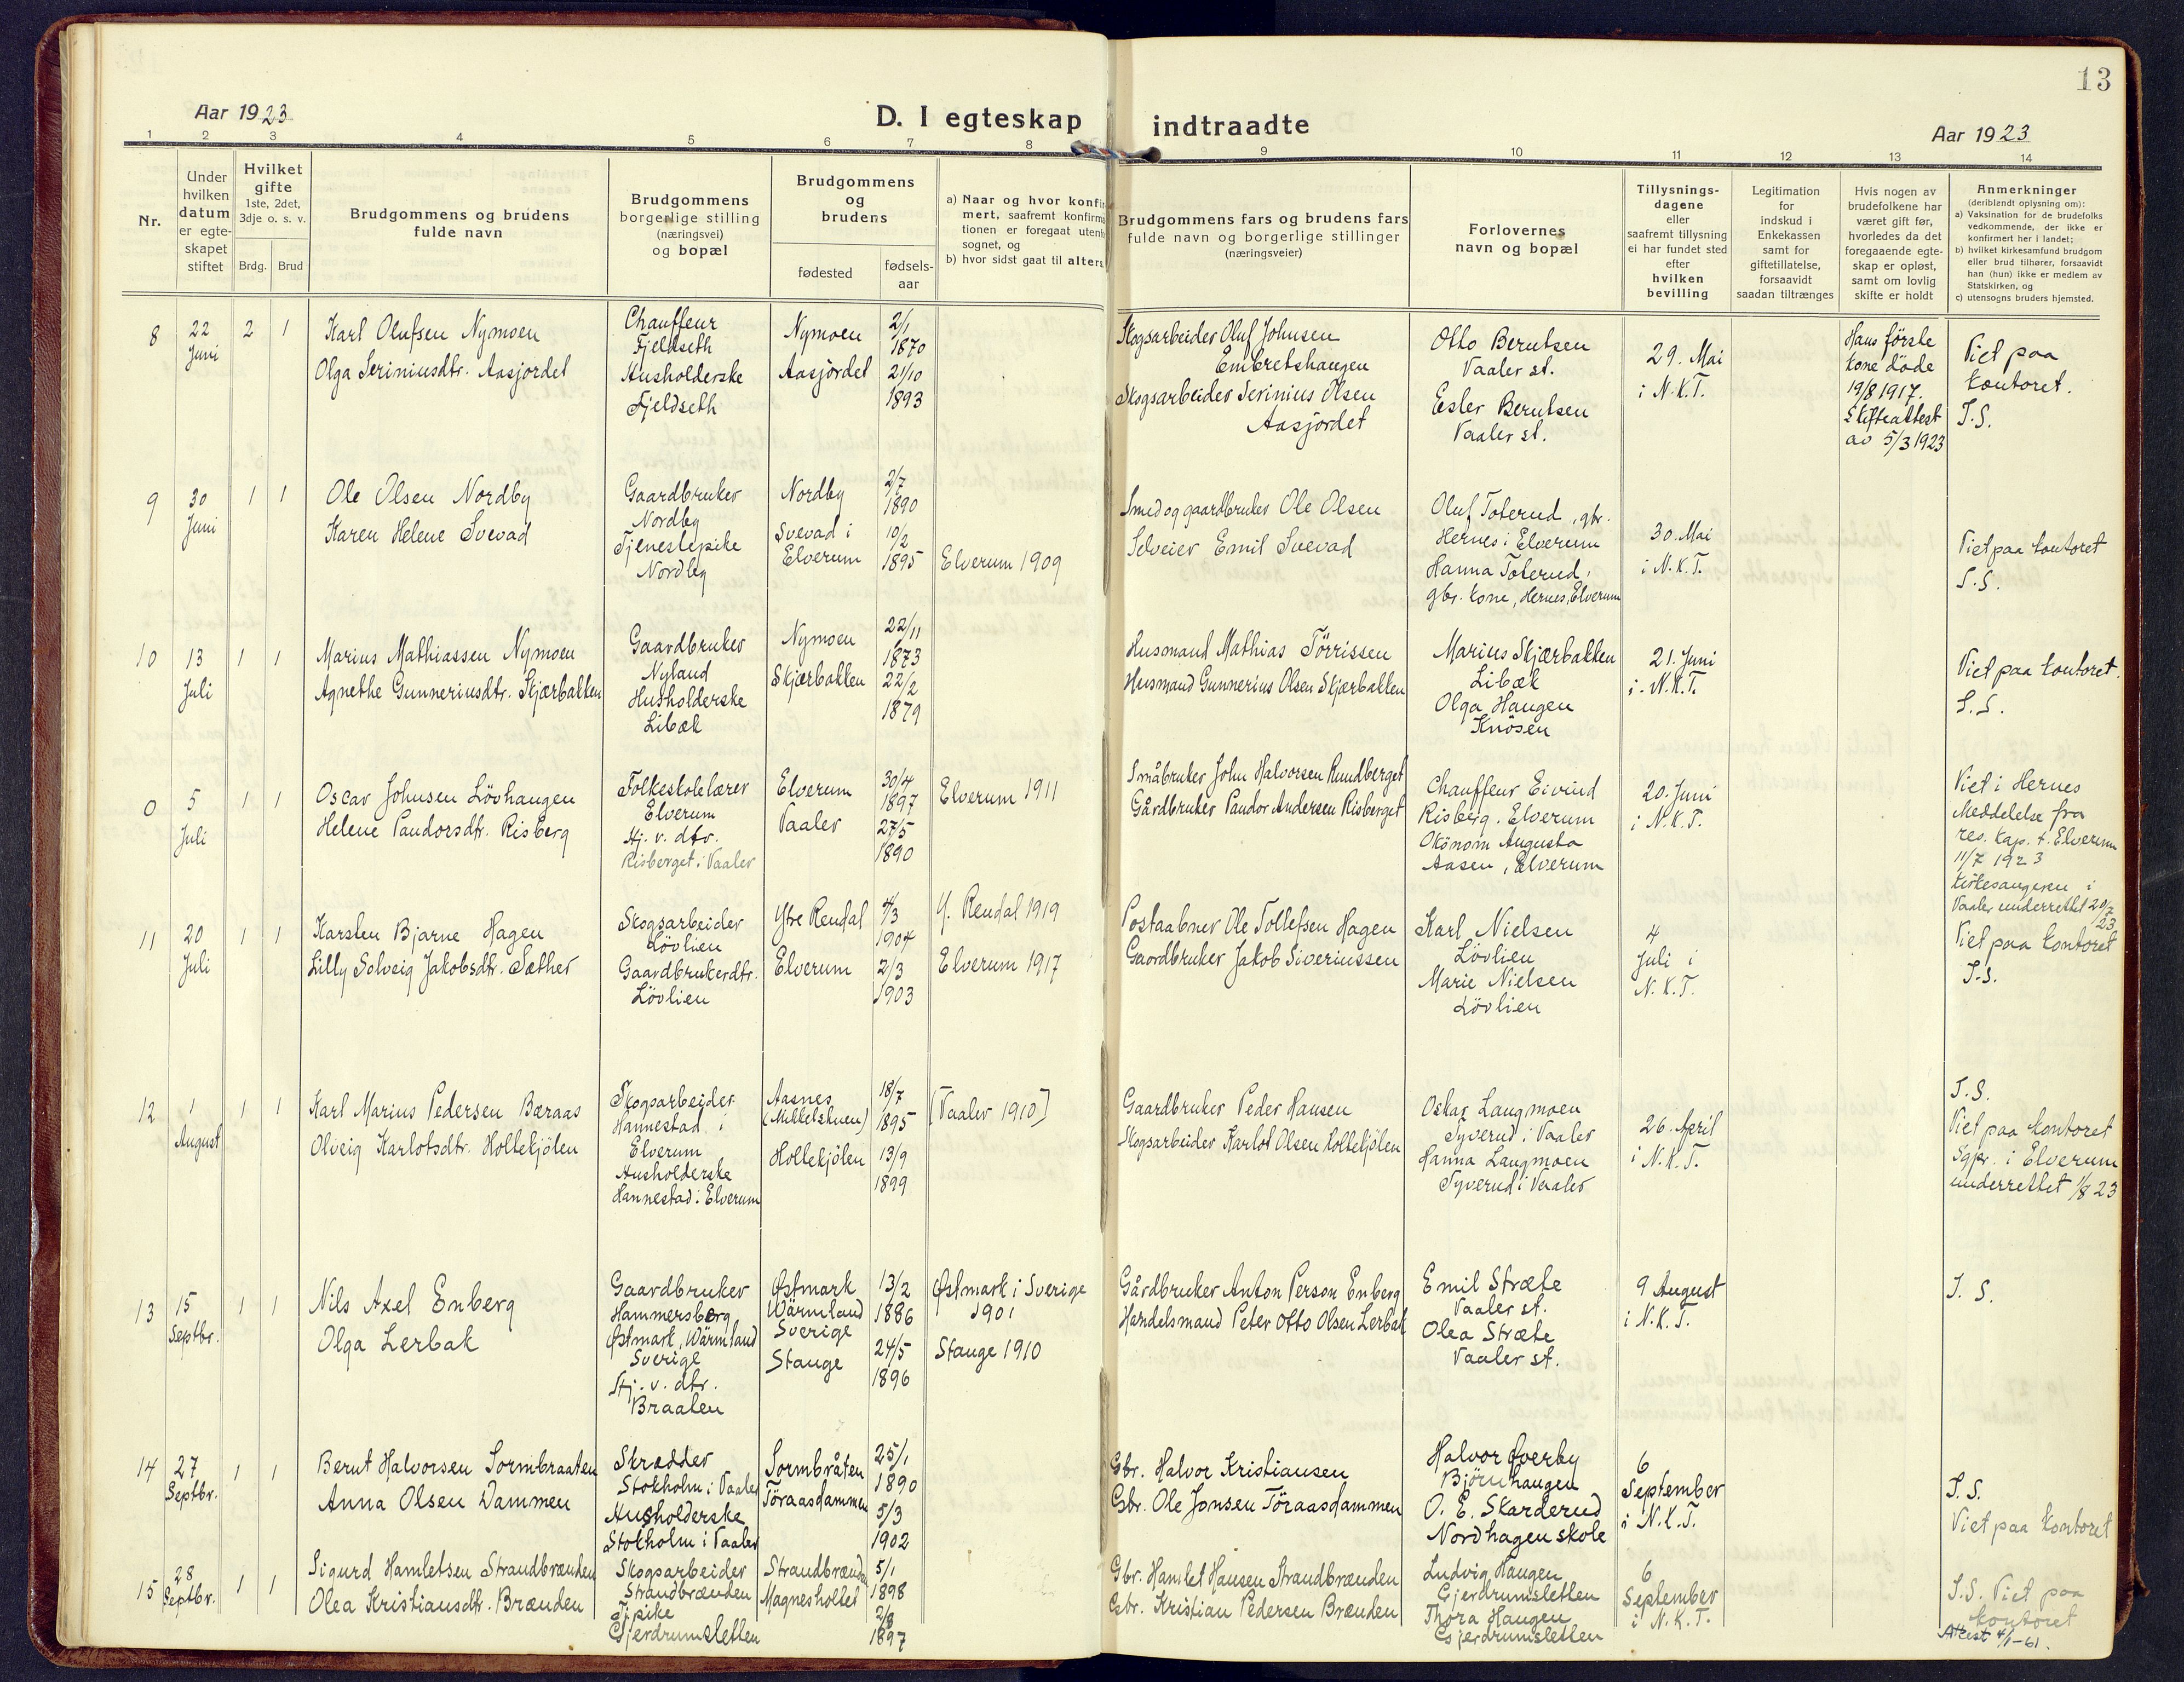 13
Aar 1923
D. I egteskap indtraadte
Aar 1923
1 2 3 4 5 6 7 8 9 10 11 12 13 14
Nr.
Under hvilken datum er egte-skapet stiftet
Hvilket gifte
1ste, 2det, 3dje o. s. v.
Brdg. Brud
Brudgommens og brudens fulde navn
Brudgommens borgerlige stilling (næringsvei) og bopæl
Brudgommens og brudens
fødested
fødsels-aar
a) Naar og hvor konfir
mert, saafremt konfirma
tionen er foregaat utenfo
sognet, og
b) hvor sidst gaat til alters
Brudgommens fars og brudens fars
fulde navn og borgerlige stillinger
(næringsveier)
Forlovernes
navn og bopæl
Tillysnings-
dagene
eller
saafremt tillysning
ei har fundet sted
efter
hvilken
bevilling
Legitimation
for
indskud i
Enkekassen
samt for
giftetillatelse,
forsaavidt
saadan tiltrænges
Hvis nogen av
brudefolkene har
været gift før,
hvorledes da det
foregaaende egte-
skap er opløst,
samt om lovlig
skifte er holdt
Anmerkninger
(deriblandt oplysning om):
a) Vaksination for de brudefolks
vedkommende, der ikke er
konfirmert her i landet;
b) hvilket kirkesamfund brudgom
eller brud tilhører, forsaavidt
han (hun) ikke er medlem av
Statskirken, og
c) utensogns bruders hjemsted.
8
22
Juni
2 1
Karl Olufsen Nymoen
Olga Seriniusdtr. Aasjordet
Chauffeur
Fjeldseth
Husholderske
Fjeldseth
Nymoen
Aasjordet
2/1
1870
21/10
1893
Skogsarbeider Oluf Johnsen
Embretshaugen
Skogsarbeider Serinius Olsen
Aasjordet
Otto Berntsen
Vaaler st.
Ester Berntsen
Vaaler st.
29. Mai
i N.K.T.
Hans förste
kone döde
19/8 1917.
Skifteattest
av 5/3 1923
Viet paa
kontoret.
T.S.
9
30
Juni
1 1
Ole Olsen Nordby
Karen Helene Svevad
Gaardbruker
Nordby
Tjenestepike
Nordby
Nordby
Svevad i
Elverum
2/7
1890
10/2
1895
Elverum 1909
Smed og gaardbruker Ole Olsen
Selveier Emil Svevad
Oluf Toterud, gbr.
Hernes i Elverum
Hanna Toterud,
gbr. kone, Hernes, Elverum
30. Mai
i N.K.T.
Viet paa kontoret
T.S.
10
13
Juli
1 1
Marius Mathiassen Nymoen
Agnethe Gunneriusdtr. Skjærbakken
Gaardbruker
Nyland
Husholderske
Libæk
Nymoen
Skjærbakken
22/11
1873
22/2
1879
Husmand Mathias Törrissen
Husmand Gunnerius Olsen Skjærbakken
Marius Skjærbakken
Libæk
Olga Haugen
Knösen
21. Juni
i N.K.T.
Viet paa kontoret.
T.S.
0
5
Juli
1 1
Oscar Johnsen Lövhaugen
Helene Pandorsdtr. Risberg
Folkeskolelærer
Elverum
Hj. v. dtr.
Risberget i Vaaler
Elverum
Vaaler
30/4
1897
27/5
1890
Elverum 1911
Småbruker John Halvorsen Rundberget
Gårdbruker Pandor Andersen Risberget
Chauffeur Eivind
Risberg. Elverum
Okönom Augusta
Aasen, Elverum
20. Juni
i N.K.T.
Viet i Hernes
Meddelelse fra
res. kap. t. Elverum
11/7 1923
Kirkesangeren i
Vaaler underrettet 20/7 23
11
20
Juli
1 1
Karsten Bjarne Hagen
Lilly Solveig Jakobsdtr. Sæther
Skogsarbeider
Lövlien
Gaardbrukerdtr.
Lövlien
Ytre Rendal
Elverum
4/3
1904
2/3
1903
Y. Rendal 1919
Elverum 1917
Postaabner Ole Tollefsen Hagen
Gaardbruker Jakob Siverinssen
Karl Nielsen
Lövlien
Marie Nielsen
Lövlien
4
Juli i
N.K.T.
Viet paa kontoret
T.S.
12
1
August
1 1
Karl Marius Pedersen Bæraas
Olveig Karlotsdtr. Holtekjölen
Skogsarbeider
Hannestad i
Elverum
Husholderske
Hannestad i Elverum
Aasnes
(Mikkelstuen)
Holtekjölen
18/7
1895
13/9
1899
[Vaaler 1910]
Gaardbruker Peder Hansen
Skogsarbeider Karlot Olsen Holtekjölen
Oskar Langmoen
Syverud i Vaaler
Hanna Langmoen
Syverud i Vaaler
26. April
i N.K.T.
T.S.
Viet paa kontoret
Sgpr. i Elverum
underrettet 1/8 23
13
15
Septbr.
1 1
Nils Axel Enberg
Olga Lerbak
Gaardbruker
Hammersberg
Østmark, Wärmland
Sverige
Hj. v. dtr.
Braaten
Østmark
Wärmland
Sverige
Stange
13/2
1886
24/5
1896
Østmark i Sverige
1901
Stange 1910
Gårdbruker Anton Person Enberg
Handelsmand Peter Otto Olsen Lerbak
Emil Stræte
Vaaler st.
Olea Stræte
Vaaler st.
9 August
i N.K.T.
T. S.
14
27
Septbr.
1 1
Bernt Halvorsen Sormbraaten
Anna Olsen Dammen
Skrædder
Stokholm i Vaaler
Husholderske
Stokholm i Vaaler
Sormbråten
Töraasdammen
25/1
1890
5/3
1902
Gbr. Halvor Kristiansen
Gbr. Ole Jonsen Töraasdammen
Halvor Øverby
Björnhaugen
O. E. Skarderud
Nordhagen skole
6
September
i N.K.T.
T.S.
Viet paa kontoret
15
28
Septbr.
1 1
Sigurd Hamletsen Strandbrænden
Olea Kristiansdtr. Brænden
Skogsarbeider
Strandbrænden
Tj.pike
Gjerdrumsletten
Strandbrænden
Magnesholtet
5/1
1898
2/8
1897
Gbr. Hamlet Hansen Strandbrænden
Gbr. Kristian Pedersen Brænden
Ludvig Haugen
Gjerdrumsletten
Thora Haugen
Gjerdrumsletten
6
September
i N.K.T.
T.S. Viet paa
kontoret
Attest 4/1-61.